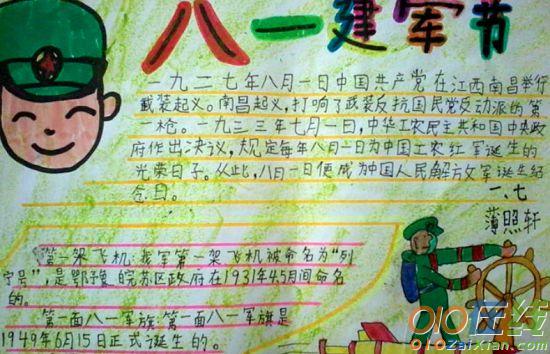 八一建军节
一九二七年八月一日中国共产党在江西南昌举行
武装起义。南昌起义,打响了武装反抗国民党反动派的第
一枪。一九三三年七月一日,中华工农民主共和国中央政
府作出决议,规定每年八月一日为中国工农红军诞生的
光荣日子。从此,八月一日便成为中国人民解放军诞生纪
念日。
一、七
薄照轩
第一架飞机:我军第一架飞机被命名为“列
宁号”,是鄂豫皖苏区政府在1931年45月间命名
的。
第一面八一军旗:第一面八一军旗是
1949年6月15日正式诞生的。
010在线
010ZaiXian.com